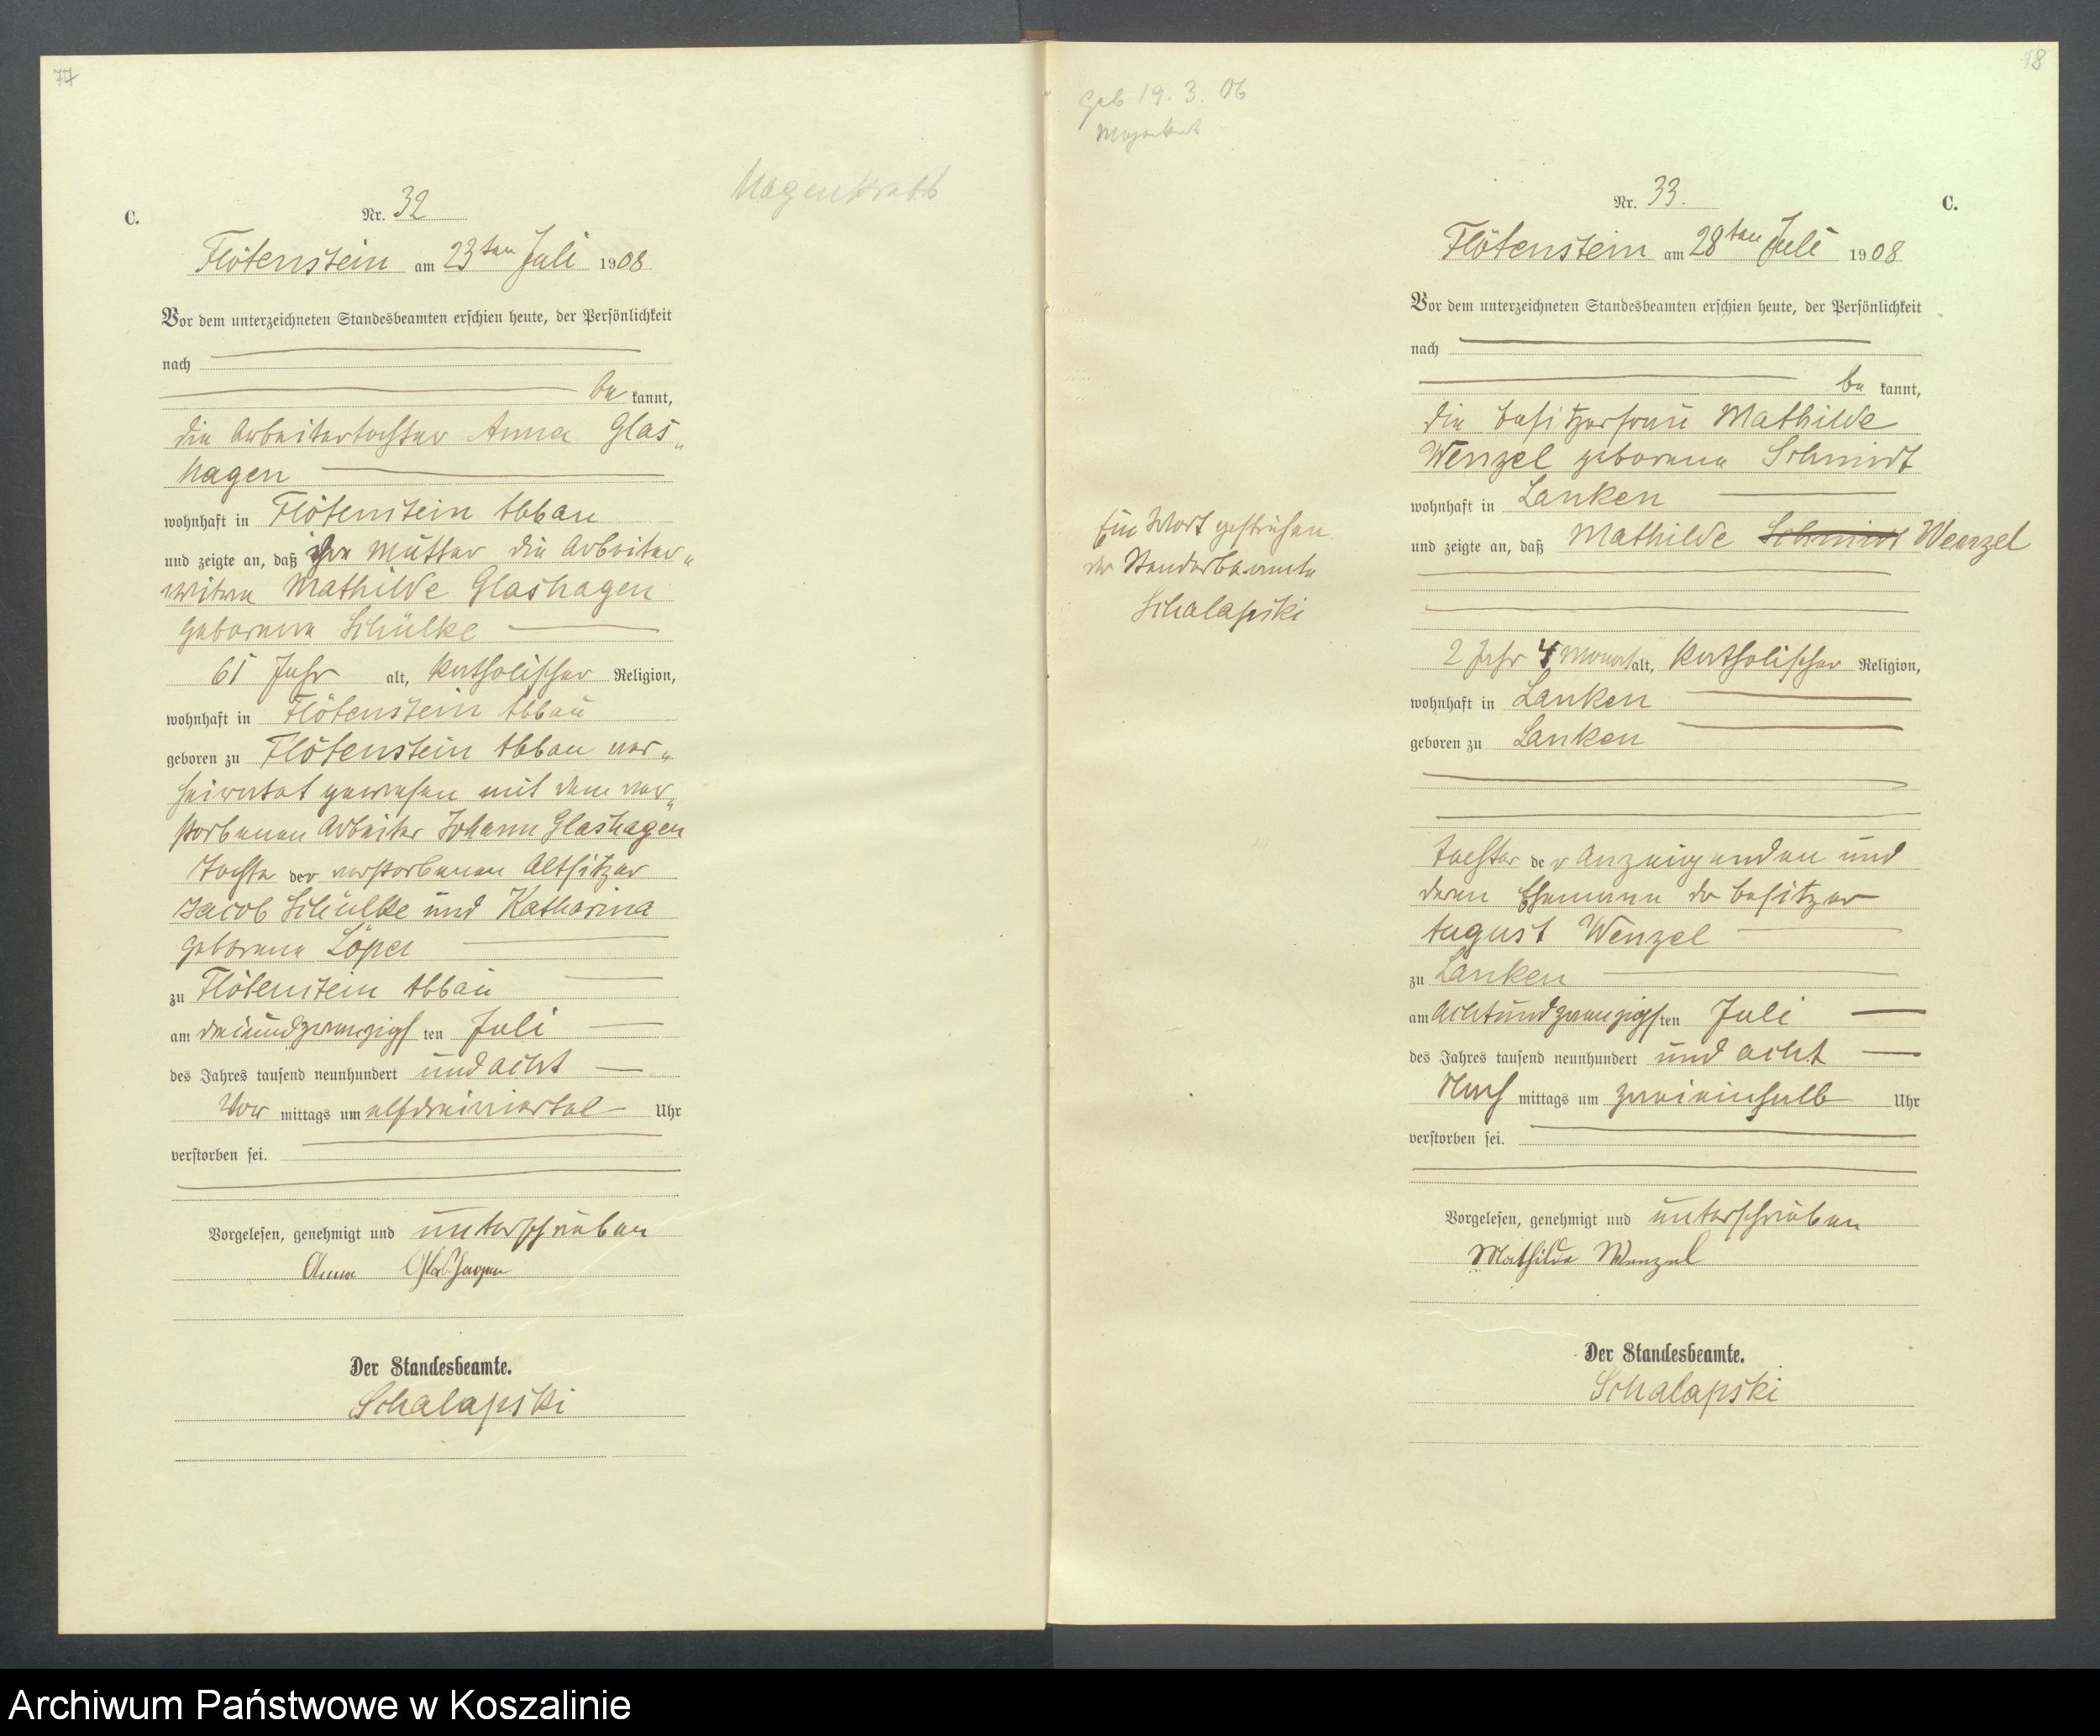 77
Magenkrebs
C.
Nr. 32
Flötenstein am 23ten Juli 1908
Vor dem unterzeichneten Standesbeamten erschien heute, der Persönlichkeit
nach
be kannt,
die Arbeitertochter Anna Glas„
hagen
wohnhaft in Flötenstein Abbau
und zeigte an, daß ihre Mutter die Arbeiter„
witwe Mathilde Glashagen
geborene Schülke
61 Jahr alt, katholischer Religion,
wohnhaft in Flötenstein Abbau
geboren zu Flötenstein Abbau ver„
heiratet gewesen mit dem ver„
storbenen Arbeiter Johann Glashagen
Tochter der verstorbenen Altsitzer
Jacob Schülke und Katharina
geborene Löper
zu Flötenstein Abbau
am dreiundzwanzigsten Juli
des Jahres tausend neunhundert und acht
Vor mittags um elfdreiviertel Uhr
verstorben sei.
Vorgelesen, genehmigt und unterschrieben
Anna Glashagen
Der Standesbeamte.
Schalapski
78
Geb 19. 3. 06
Nr. 33.
C.
Flötenstein am 28ten Juli 1908
Vor dem unterzeichneten Standesbeamten erschien heute, der Persönlichkeit
nach
be kannt,
die Besitzerfrau Mathilde
Wenzel geborene Schmidt
wohnhaft in Lanken
und zeigte an, daß Mathilde Schmidt Wenzel
Ein Wort gestrichen
der Standesbeamte
Schalapski
2 Jahr 4 Monat alt, katholischer Religion,
wohnhaft in Lanken
geboren zu Lanken
Tochter der Anzeigenden und
deren Ehemann der Besitzer
August Wenzel
zu Lanken
am achtundzwanzigsten Juli
des Jahres tausend neunhundert und acht
Nach mittags um zweieinhalb Uhr
verstorben sei.
Vorgelesen, genehmigt und unterschrieben
Mathilde Wenzel
Der Standesbeamte.
Schalapski
Archiwum Państwowe w Koszalinie